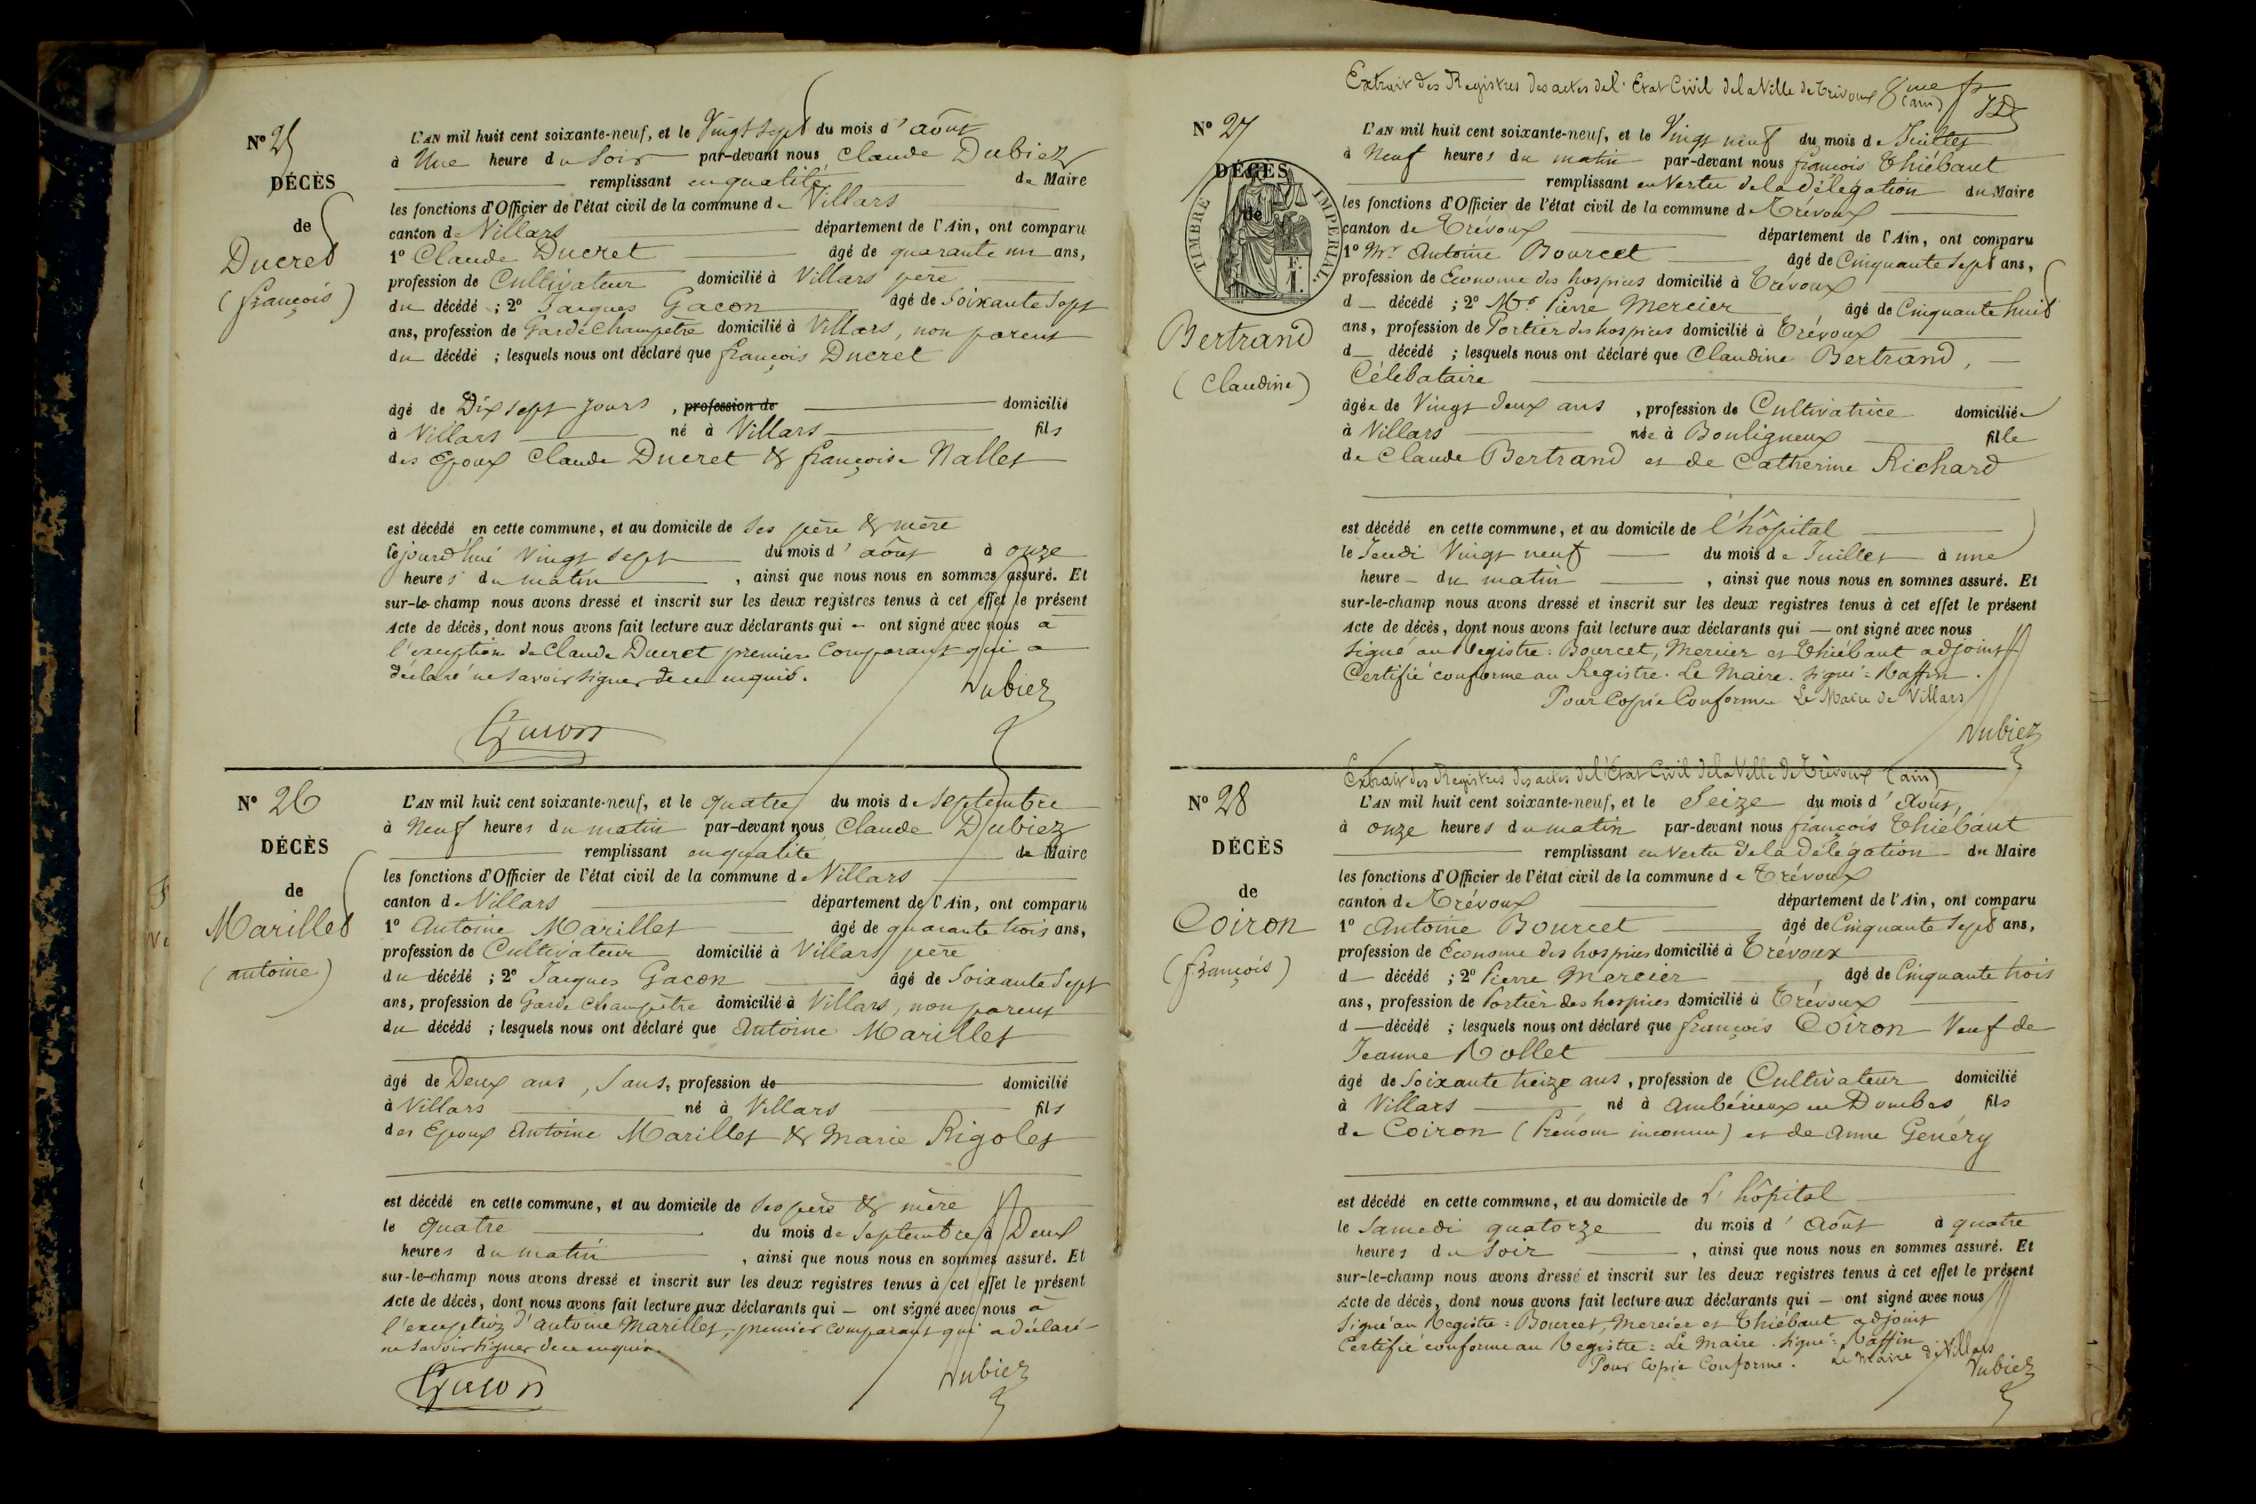 N° 25
DÉCÈS
de
Ducret
(françois)
L'AN mil huit cent soixante-neuf, et le Vingt sept du mois d'aôut
à Une heure du Soir par-devant nous Claude Dubiez
remplissant en qualité de Maire
les fonctions d'Officier de l'état civil de la commune de Villars
canton de Villars département de l'Ain, ont comparu
1° Claude Ducret âgé de quarante un ans,
profession de Cultivateur domicilié à Villars père
du décédé ; 2° Jacques Gacon âgé de Soixante Sept
ans, profession de Garde Champêtre domicilié à Villars, non parent
du décédé ; lesquels nous ont déclaré que françois Ducret
âgé de Dix sept jours , profession de domicilié
à Villars né à Villars fils
des Epoux Claude Ducret & françoise Nallet
est décédé en cette commune, et au domicile de Ses père & mère
Cejourd'hui Vingt sept du mois d'aôut à onze
heures du matin , ainsi que nous nous en sommes assuré. Et
sur-le-champ nous avons dressé et inscrit sur les deux registres tenus à cet effet le présent
Acte de décès, dont nous avons fait lecture aux déclarants qui — ont signé avec nous à
l'exception de Claude Ducret premier Comparant qui a
déclaré ne Savoir Signer de ce enquis.
Dubiez
Gacon
N° 26
DÉCÈS
de
Marillet
(antoine)
L'AN mil huit cent soixante-neuf, et le quatre du mois de Septembre
à Neuf heures du matin par-devant nous Claude Dubiez
remplissant en qualité de Maire
les fonctions d'Officier de l'état civil de la commune de Villars
canton de Villars département de l'Ain, ont comparu
1° Antoine Marillet âgé de quarante trois ans,
profession de Cultivateur domicilié à Villars père
du décédé ; 2° Jacques Gacon âgé de Soixante Sept
ans, profession de Garde Champêtre domicilié à Villars, non parent
du décédé ; lesquels nous ont déclaré que Antoine Marillet
âgé de Deux ans , Sans, profession de domicilié
à Villars né à Villars fils
des Epoux Antoine Marillet & Marie Rigolet
est décédé en cette commune, et au domicile de Ses père & mère
le quatre du mois de Septembre à Deux
heures du matin , ainsi que nous nous en sommes assuré. Et
sur-le-champ nous avons dressé et inscrit sur les deux registres tenus à cet effet le présent
Acte de décès, dont nous avons fait lecture aux déclarants qui — ont signé avec nous à
l'exception d'antoine Marillet, premier comparant qui a déclaré
ne Savoir Signer de ce enquis.
Dubiez
Gacon
Extrait des Registres des actes de l'Etat Civil de la Ville de Trévoux (ain)
8me
N° 27
DÉCÈS
de
TIMBRE IMPERIAL
F.
1.
Bertrand
(Claudine)
L'AN mil huit cent soixante-neuf, et le Vingt neuf du mois de Juillet
à Neuf heures du matin par-devant nous françois Thiébaut
remplissant en Vertu de la délégation du Maire
les fonctions d'Officier de l'état civil de la commune de Trévoux
canton de Trévoux département de l'Ain, ont comparu
1° Mr Antoine Bourcet âgé de Cinquante Sept ans,
profession de Econome des hospices domicilié à Trévoux
d — décédé ; 2° Mr Pierre Mercier âgé de Cinquante huit
ans, profession de Portier des hospices domicilié à Trévoux
d — décédé ; lesquels nous ont déclaré que Claudine Bertrand,
Célebataire
âgée de Vingt deux ans , profession de Cultivatrice domiciliée
à Villars née à Bouligneux fille
de Claude Bertrand et de Catherine Richard
est décédé en cette commune, et au domicile de l'hôpital
le Jeudi Vingt neuf du mois de Juillet à une
heure — du matin , ainsi que nous nous en sommes assuré. Et
sur-le-champ nous avons dressé et inscrit sur les deux registres tenus à cet effet le présent
Acte de décès, dont nous avons fait lecture aux déclarants qui — ont signé avec nous
Signé au Registre : Bourcet, Mercier et Thiébaut adjoint
Certifié conforme au Registre. Le Maire. Signé : Raffin.
Pour Copie Conforme Le Maire de Villars
Dubiez
Extrait des Registres des actes de l'Etat Civil de la Ville de Trévoux (ain)
N° 28
DÉCÈS
de
Coiron
(françois)
L'AN mil huit cent soixante-neuf, et le Seize du mois d'Aôut,
à onze heures du matin par-devant nous françois Thiébaut
remplissant en Vertu de la Délégation du Maire
les fonctions d'Officier de l'état civil de la commune de Trévoux
canton de Trévoux département de l'Ain, ont comparu
1° Antoine Bourcet âgé de Cinquante Sept ans,
profession de Econome des hospices domicilié à Trévoux
d — décédé ; 2° Pierre Mercier âgé de Cinquante trois
ans, profession de Portier des hospices domicilié à Trévoux
d — décédé ; lesquels nous ont déclaré que françois Coiron Veuf de
Jeanne Rollet
âgé de Soixante treize ans , profession de Cultivateur domicilié
à Villars né à Ambérieux en Dombes fils
de Coiron (Prénom inconnu) et de Anne Genéry
est décédé en cette commune, et au domicile de l'hôpital
le Samedi quatorze du mois d'Aôut à quatre
heures du Soir , ainsi que nous nous en sommes assuré. Et
sur-le-champ nous avons dressé et inscrit sur les deux registres tenus à cet effet le présent
Acte de décès, dont nous avons fait lecture aux déclarants qui — ont signé avec nous
Signé au Registre : Bourcet, Mercier et Thiébaut adjoint
Certifié conforme au Registre : Le Maire. Signé : Raffin
Pour Copie Conforme. Le Maire de Villars
Dubiez